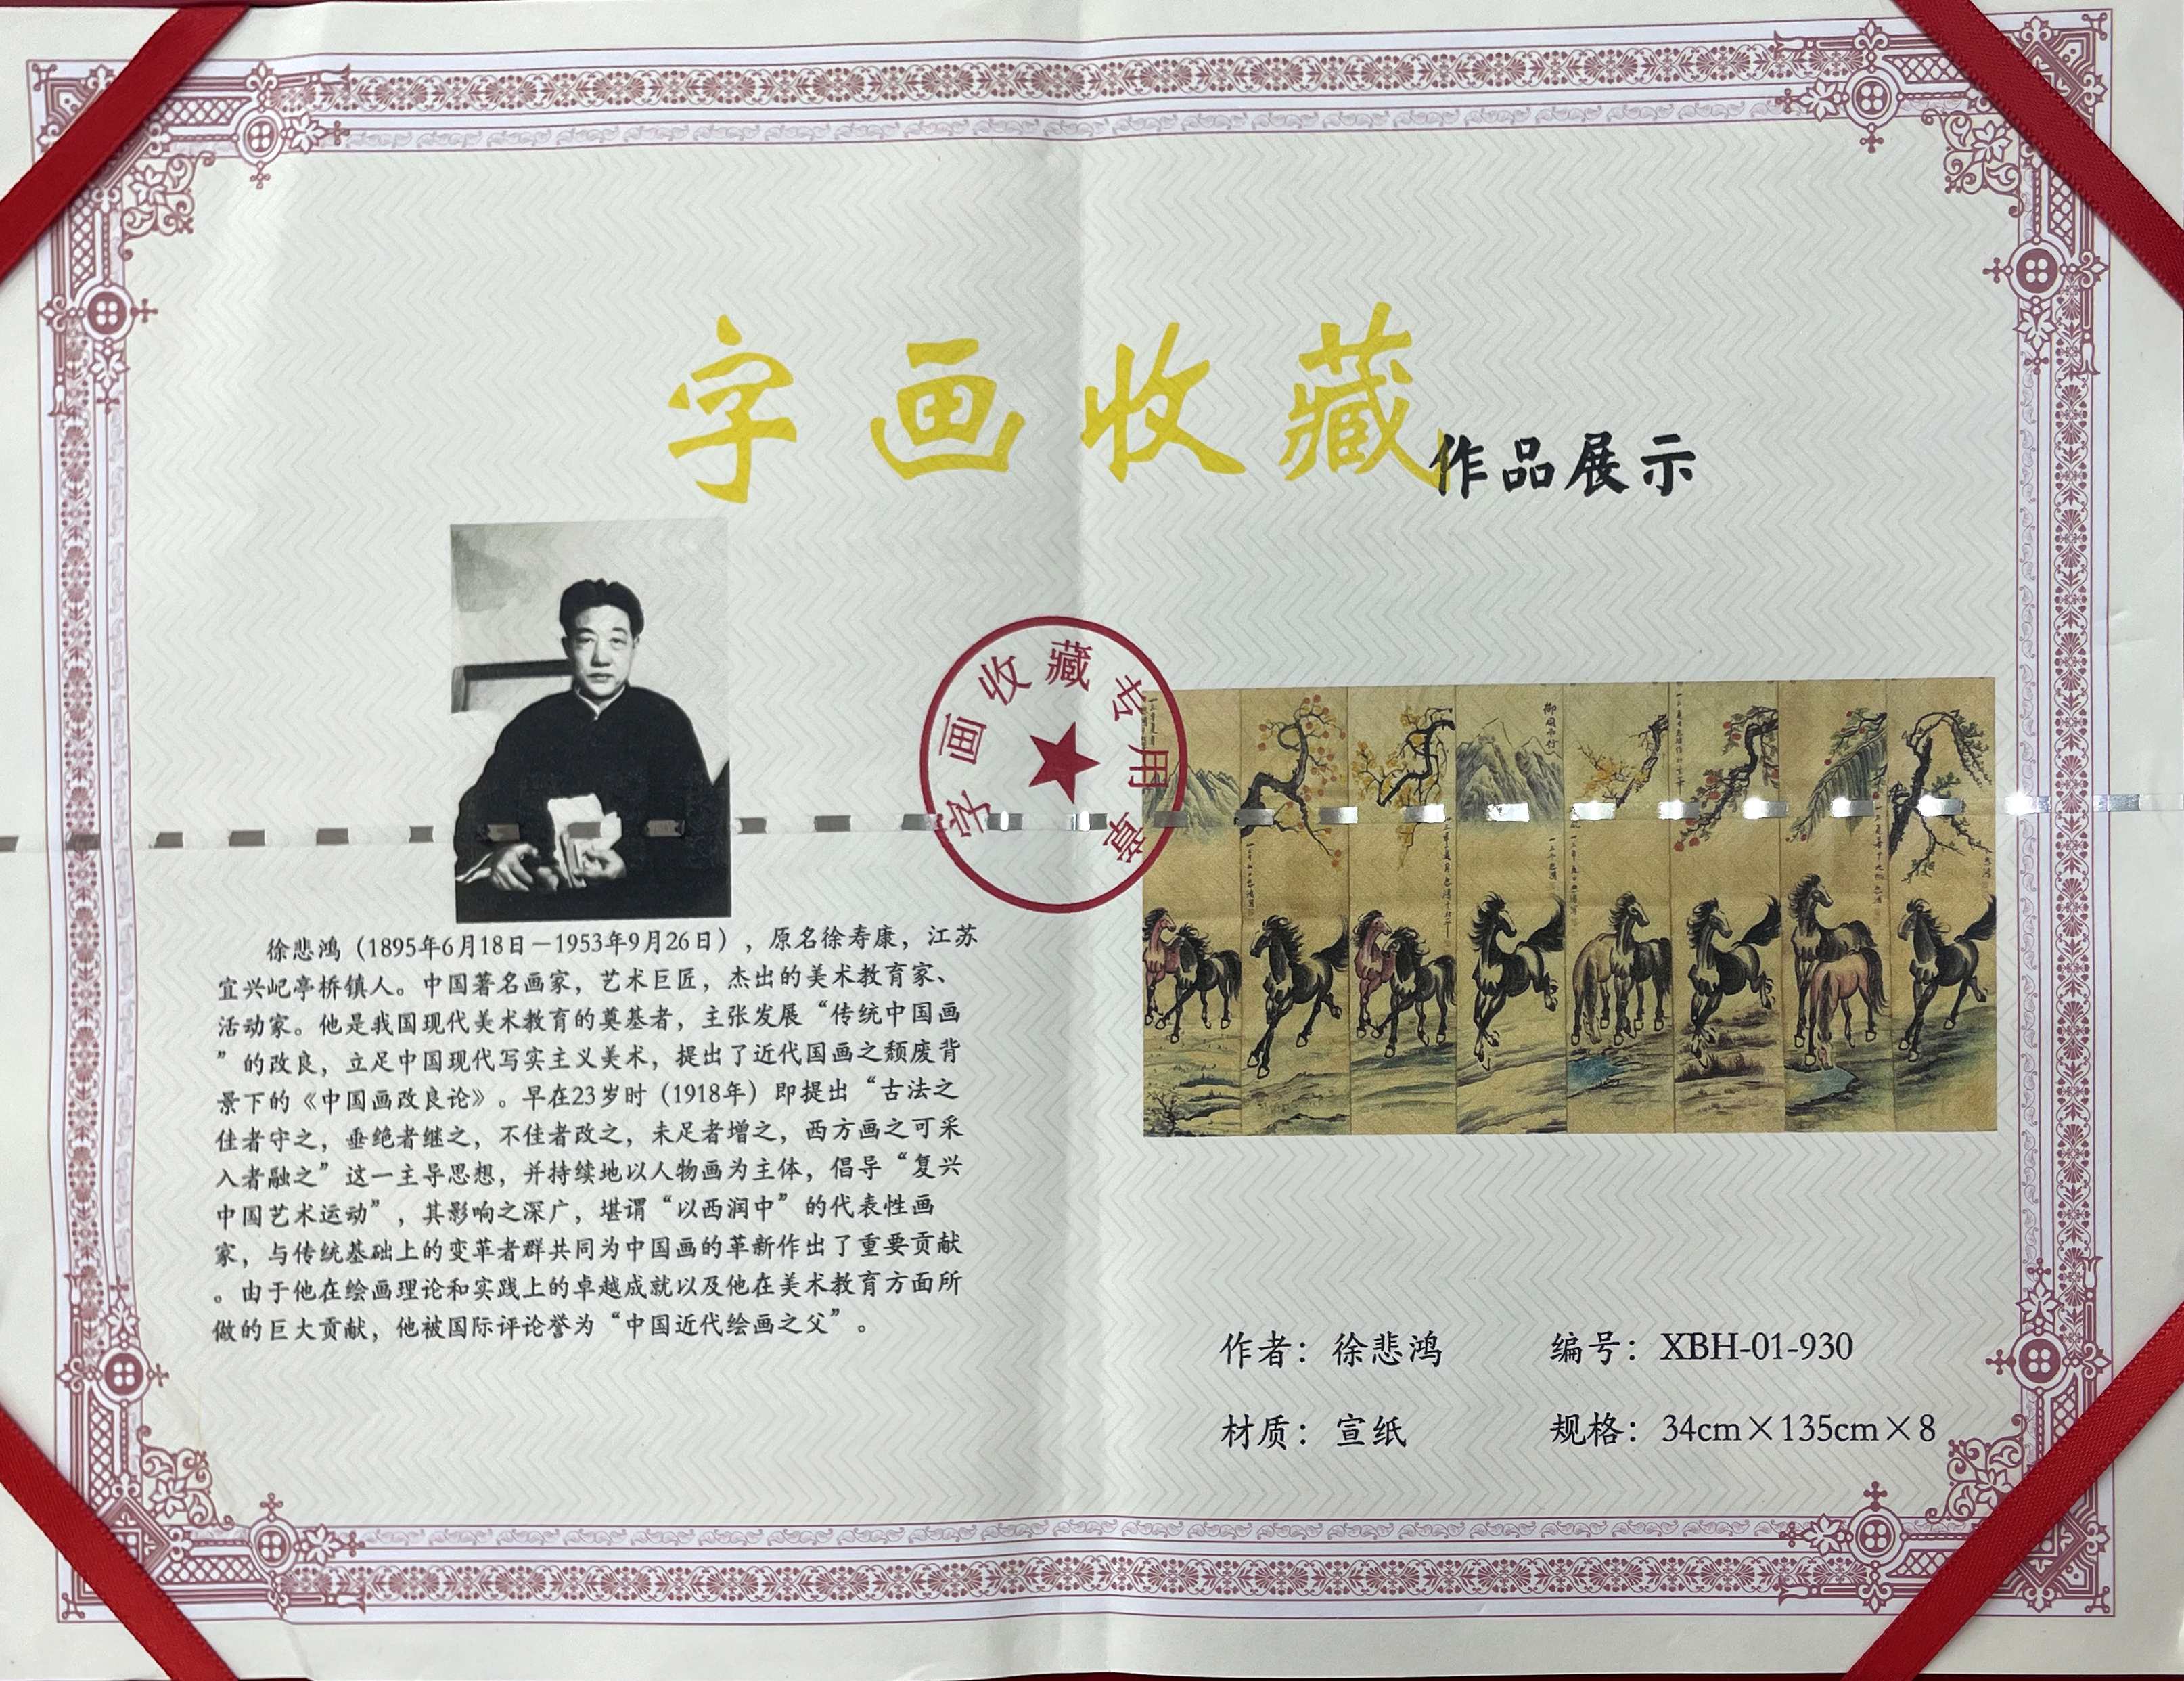 字画收藏作品展示
字画收藏专用章
徐悲鸿（1895年6月18日－1953年9月26日），原名徐寿康，江苏
宜兴屺亭桥镇人。中国著名画家，艺术巨匠，杰出的美术教育家、
活动家。他是我国现代美术教育的奠基者，主张发展“传统中国画
”的改良，立足中国现代写实主义美术，提出了近代国画之颓废背
景下的《中国画改良论》。早在23岁时（1918年）即提出“古法之
佳者守之，垂绝者继之，不佳者改之，未足者增之，西方画之可采
入者融之”这一主导思想，并持续地以人物画为主体，倡导“复兴
中国艺术运动”，其影响之深广，堪谓“以西润中”的代表性画
家，与传统基础上的变革者群共同为中国画的革新作出了重要贡献
。由于他在绘画理论和实践上的卓越成就以及他在美术教育方面所
做的巨大贡献，他被国际评论誉为“中国近代绘画之父”。
作者：徐悲鸿 编号：XBH-01-930
材质：宣纸 规格：34cm×135cm×8